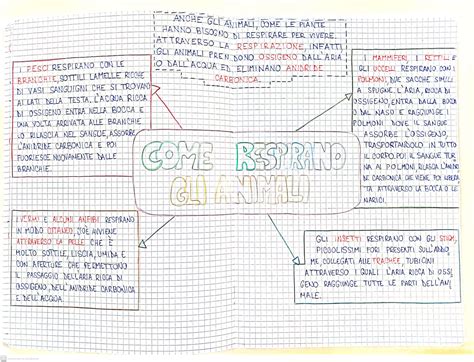 ANCHE GLI ANIMALI, COME LE PIANTE
HANNO BISOGNO DI RESPIRARE PER VIVERE.
ATTRAVERSO LA RESPIRAZIONE, INFATTI
GLI ANIMALI PRENDONO OSSIGENO DALL'ARIA
O DALL'ACQUA ED ELIMINANO ANIDRIDE
CARBONICA.
I PESCI RESPIRANO CON LE
BRANCHIE, SOTTILI LAMELLE RICCHE
DI VASI SANGUIGNI CHE SI TROVANO
AI LATI DELLA TESTA. L'ACQUA RICCA
DI OSSIGENO ENTRA NELLA BOCCA E
UNA VOLTA ARRIVATA ALLE BRANCHIE
LO RILASCIA NEL SANGUE, ASSORBE
L'ANIDRIDE CARBONICA E POI
FUORIESCE NUOVAMENTE DALLE
BRANCHIE.
I MAMMIFERI, I RETTILI E
GLI UCCELLI RESPIRANO CON I
POLMONI, DUE SACCHE SIMILI
A SPUGNE. L'ARIA, RICCA DI
OSSIGENO, ENTRA DALLA BOCCA
O DAL NASO E RAGGIUNGE I
POLMONI DOVE IL SANGUE
ASSORBE L'OSSIGENO,
TRASPORTANDOLO IN TUTTO
IL CORPO. POI IL SANGUE TORNA
AI POLMONI, RILASCIA L'ANIDRIDE
CARBONICA CHE VIENE POI LIBERATA
ATTRAVERSO LA BOCCA O LE
NARICI.
COME RESPIRANO
GLI ANIMALI
I VERMI E ALCUNI ANFIBI RESPIRANO
IN MODO CUTANEO, CIOÈ AVVIENE
ATTRAVERSO LA PELLE CHE È
MOLTO SOTTILE, LISCIA, UMIDA E
CON APERTURE CHE PERMETTONO
IL PASSAGGIO DELL'ARIA RICCA DI
OSSIGENO, DELL'ANIDRIDE CARBONICA
E DELL'ACQUA.
GLI INSETTI RESPIRANO CON GLI STIGMI,
PICCOLISSIMI FORI PRESENTI SULL'ADDO
ME, COLLEGATI ALLE TRACHEE, TUBICINI
ATTRAVERSO I QUALI L'ARIA RICCA DI OSSI
GENO RAGGIUNGE TUTTE LE PARTI DELL'ANI
MALE.